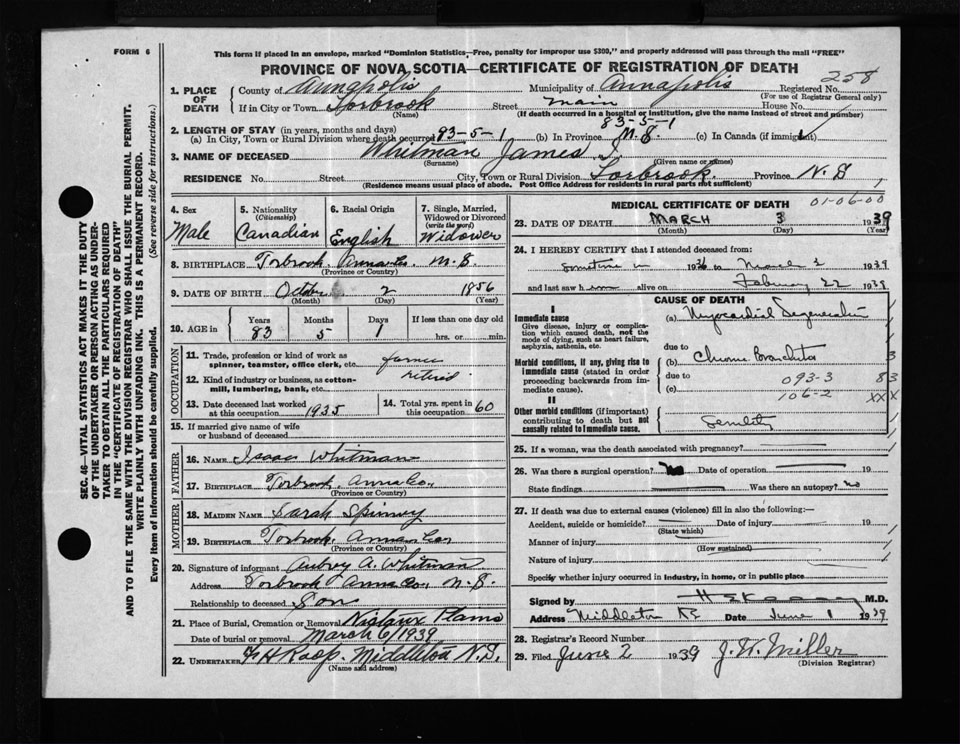 FORM 6
This form if placed in an envelope, marked "Dominion Statistics—Free, penalty for improper use $300," and properly addressed will pass through the mail "FREE"
PROVINCE OF NOVA SCOTIA—CERTIFICATE OF REGISTRATION OF DEATH
258
1. PLACE OF DEATH
County of Annapolis Municipality of Annapolis Registered No.
(For use of Registrar General only)
If in City or Town Torbrook Street main House No.
(Name) (If death occurred in a hospital or institution, give the name instead of street and number)
2. LENGTH OF STAY (in years, months and days) 83-5-1
(a) In City, Town or Rural Division where death occurred 83-5-1 (b) In Province N.S. (c) In Canada (if immigrant)
3. NAME OF DECEASED Whitman James
(Surname) (Given name or names)
RESIDENCE No. Street City, Town or Rural Division Torbrook Province N.S
(Residence means usual place of abode. Post Office Address for residents in rural parts not sufficient)
4. Sex Male
5. Nationality (Citizenship) Canadian
6. Racial Origin English
7. Single, Married, Widowed or Divorced (write the word) Widower
8. BIRTHPLACE Torbrook Anna Co. N.S.
(Province or Country)
9. DATE OF BIRTH October 2 1856
(Month) (Day) (Year)
10. AGE in Years Months Days If less than one day old
83 5 1 hrs. or min.
OCCUPATION
11. Trade, profession or kind of work as spinner, teamster, office clerk, etc. farmer
12. Kind of industry or business, as cotton-mill, lumbering, bank, etc. retired
13. Date deceased last worked at this occupation 1935
14. Total yrs. spent in this occupation 60
15. If married give name of wife or husband of deceased
FATHER
16. NAME Isaac Whitman
17. BIRTHPLACE Torbrook Anna Co.
(Province or Country)
MOTHER
18. MAIDEN NAME Sarah Spinney
19. BIRTHPLACE Torbrook Anna Co
(Province or Country)
20. Signature of informant Aubrey A. Whitman
Address Torbrook Anna Co, N.S.
Relationship to deceased Son
21. Place of Burial, Cremation or Removal Nictaux Plains
Date of burial or removal March 6/1939
22. UNDERTAKER Middleton N.S.
(Name and address)
MEDICAL CERTIFICATE OF DEATH
01-06-00
23. DATE OF DEATH MARCH 3 1939
(Month) (Day) (Year)
24. I HEREBY CERTIFY that I attended deceased from:
sometime in 1936 to March 2 1939
and last saw h alive on February 22 1939
CAUSE OF DEATH
I
Immediate cause
Give disease, injury or complication which caused death, not the mode of dying, such as heart failure, asphyxia, asthenia, etc.
(a) Myocardial Degeneration
due to
Morbid conditions, if any, giving rise to immediate cause (stated in order proceeding backwards from immediate cause).
(b) Chronic Bronchitis 3
due to 093-3 83
(c) 106-2 XXX
II
Other morbid conditions (if important) contributing to death but not causally related to immediate cause.
Senility
25. If a woman, was the death associated with pregnancy?
26. Was there a surgical operation? Date of operation 19
State findings Was there an autopsy? no
27. If death was due to external causes (violence) fill in also the following:—
Accident, suicide or homicide? Date of injury 19
(State which)
Manner of injury
(How sustained)
Nature of injury
Specify whether injury occurred in industry, in home, or in public place
Signed by M.D.
Address Middleton NS Date June 1 1939
28. Registrar's Record Number
29. Filed June 2 1939 J. W. Miller
(Division Registrar)
SEC. 46—VITAL STATISTICS ACT MAKES IT THE DUTY
OF THE UNDERTAKER OR PERSON ACTING AS UNDER-
TAKER TO OBTAIN ALL THE PARTICULARS REQUIRED
IN THE "CERTIFICATE OF REGISTRATION OF DEATH"
AND TO FILE THE SAME WITH THE DIVISION REGISTRAR WHO SHALL ISSUE THE BURIAL PERMIT.
WRITE PLAINLY WITH UNFADING INK. THIS IS A PERMANENT RECORD.
Every item of information should be carefully supplied. (See reverse side for instructions.)